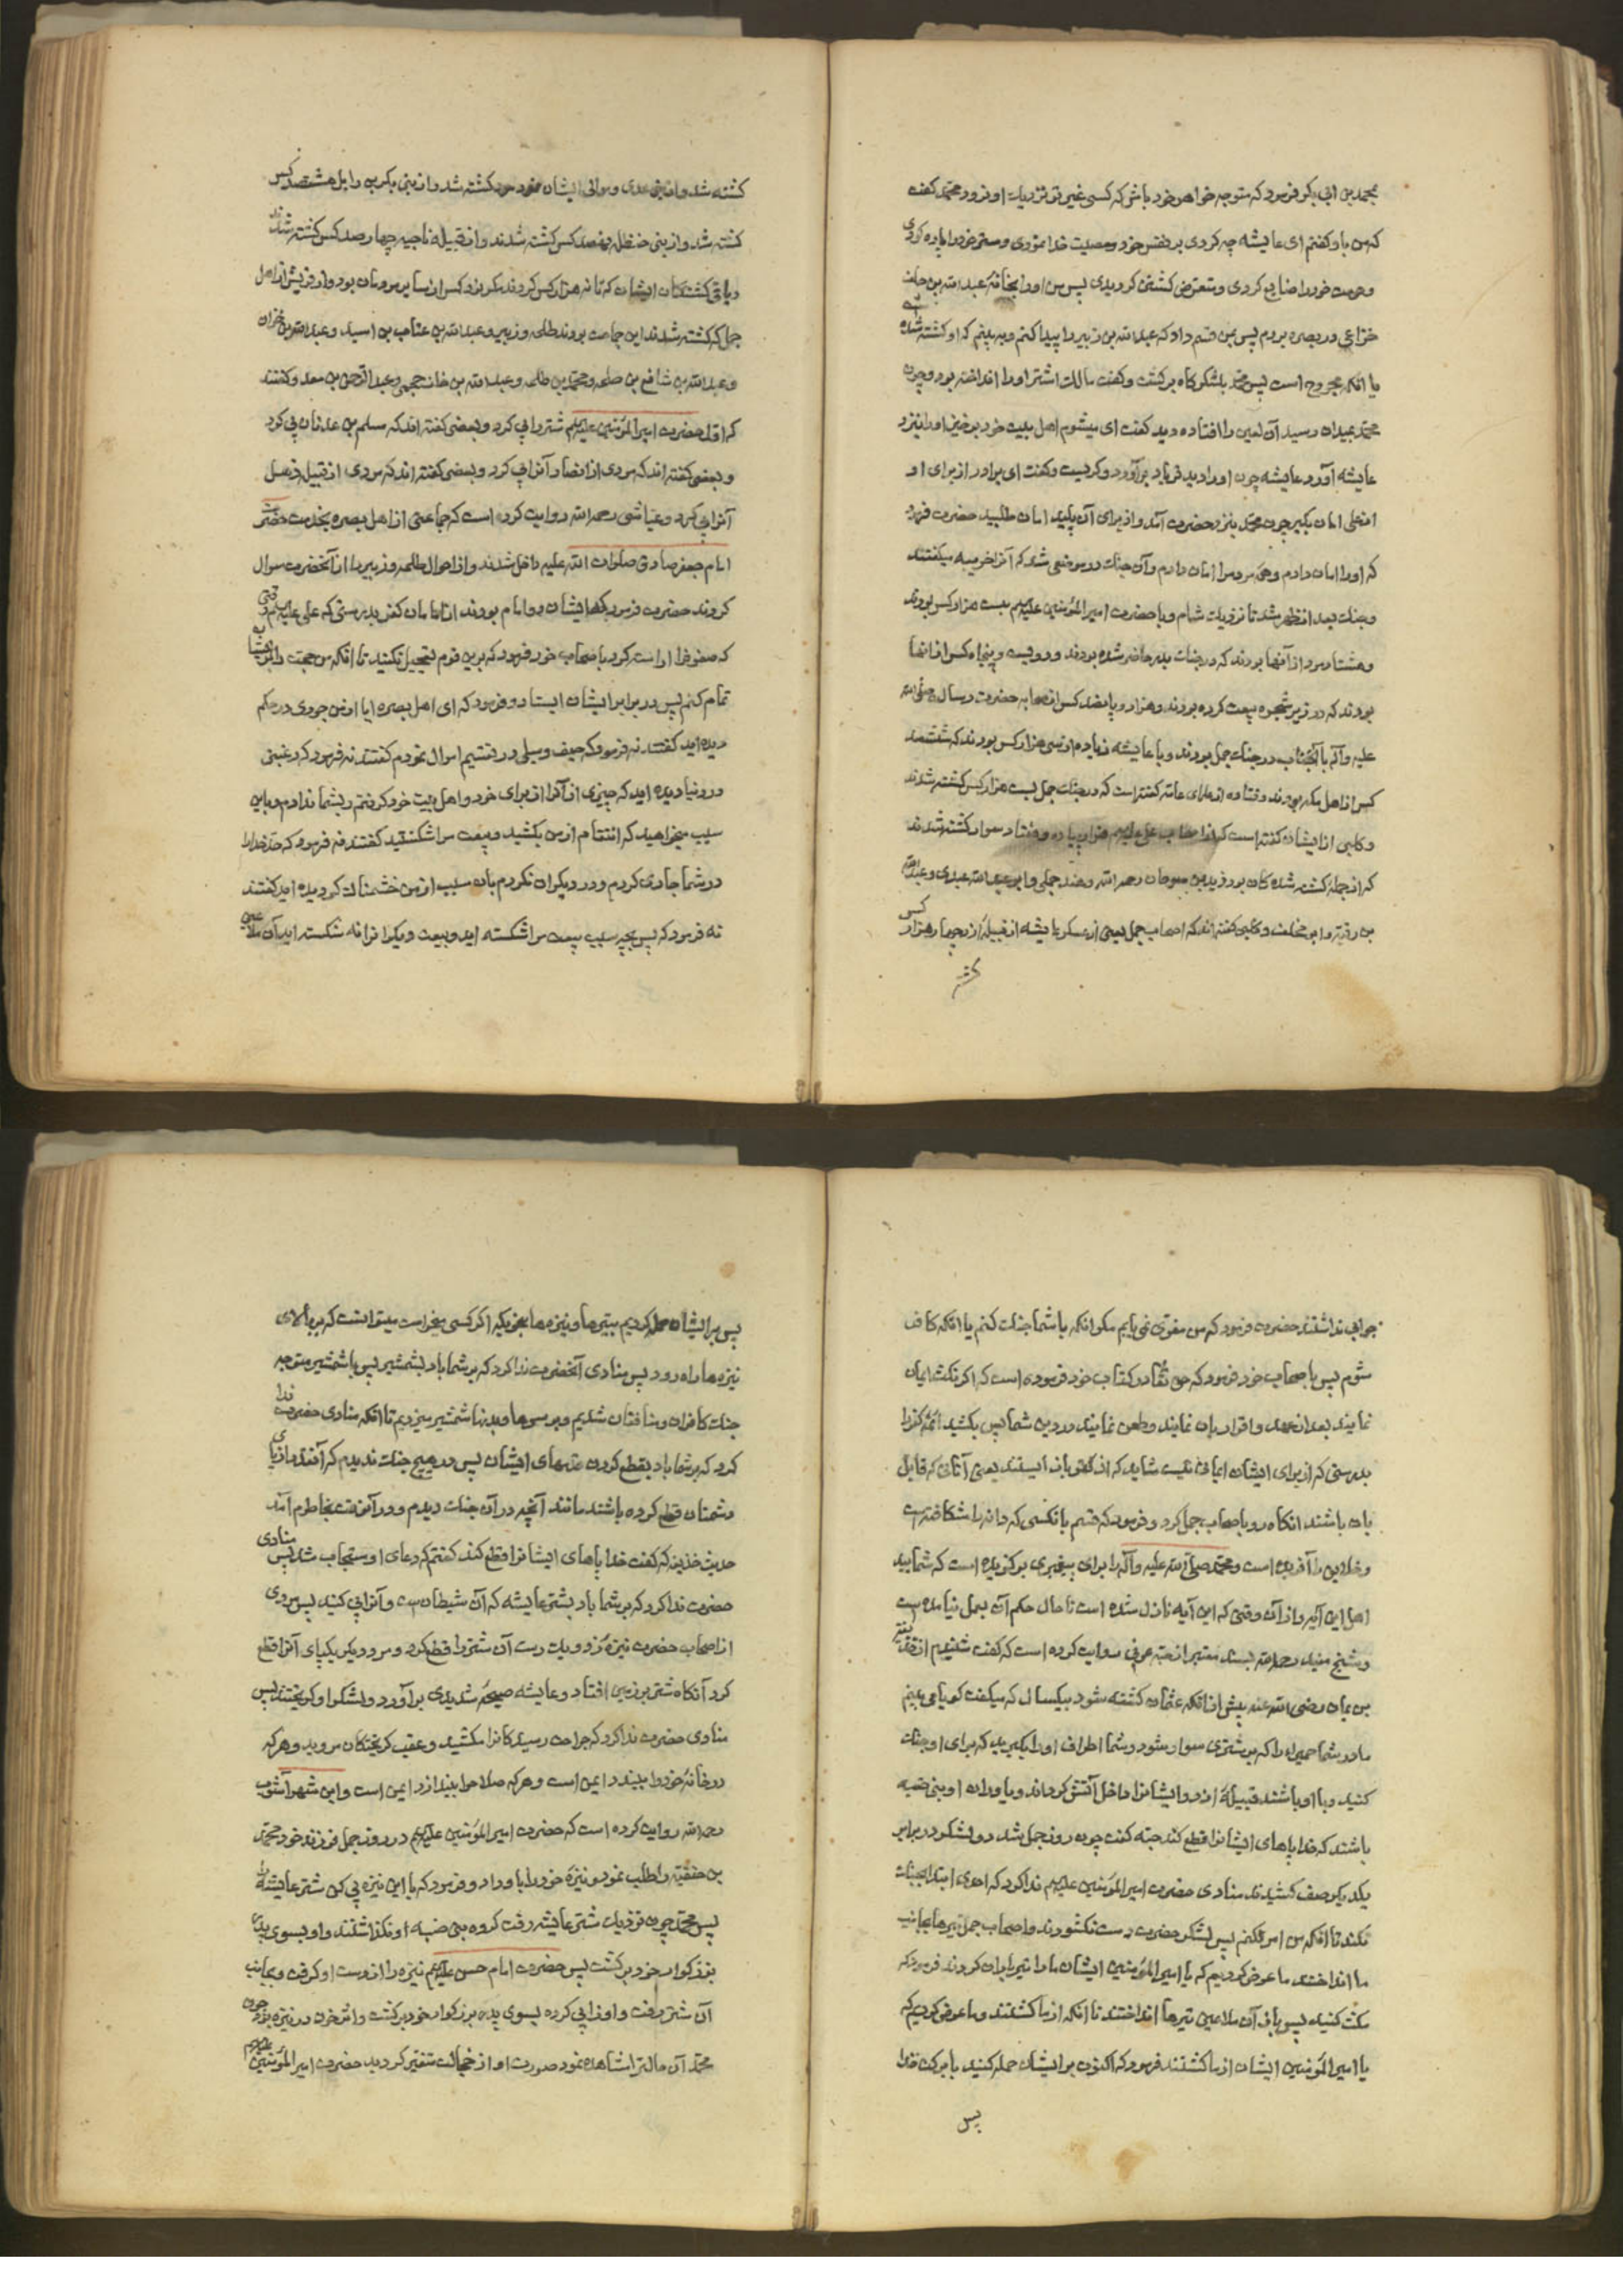 بمحمد بن ابی بکر فرمود که متوجه خواهر خود باش که کسی غیر تو نزدیک او نرود محمد گفت
که من باو گفتم ای عایشه چه کردی بر نفس خود و معصیت خدا نمودی و ستر خود را پاره کردی
و حرمت خود را ضایع کردی و متعرض کشتن گردیدی پس من او را بخانه عبد الله بن خلف
خزاعی در بصره بردم پس بمن قسم داد که عبد الله بن زبیر را پیدا کنم و به بینم که او کشته شده
یا آنکه مجروح است پس محمد بلشکرگاه برگشت و گفت مالک اشتر او را انداخته بود و چون
محمد بمیدان رسید آن لعین را افتاده دید گفت ای میشوم اهل بیت خود برخیز او را نزد
عایشه آورد عایشه چون او را دید فریاد برآورد و گریست و گفت ای برادر از برای او
از علی امان بگیر چون محمد بنزد حضرت آمد و از برای آن پلید امان طلبید حضرت فرمود
که او را امان دادم و همه مردم را امان دادم و آن جنک در موضعی شد که آنرا خریبه میگفتند
و جنک بعد از ظهر شد تا نزدیک شام و با حضرت امیر المؤمنین علیه السلم بیست هزار کس بودند
و هشتاد مرد از آنها بودند که در جنک بدر حاضر شده بودند و دویست و پنجاه کس از آنها
بودند که در زیر شجره بیعت کرده بودند و هزار و پانصد کس از صحابه حضرت رسال صلی الله
علیه و آله با آنجناب در جنک جمل بودند و با عایشه زیاده از سی هزار کس بودند که ششصد
کس از اهل مکه بودند و قتاده از علمای عامه گفته است که در جنک جمل بیست هزار کس کشته شدند
و کلبی از ایشان گفته است که از اصحاب علی علیه السلم هزار پیاده و هفتاد سوار کشته شدند
که از جمله کشته شده کان بود زید بن صوحان رحمه الله و هند جملی و ابو عبد الله عبدی و عبد الله
بن رقیه و ابو مخنف و کلبی گفته اند که اصحاب جمل یعنی از عسکر عایشه از قبیله ازد چهار هزار کس
کشته
کشته شد و از بنی عدی و موالی ایشان نود مرد کشته شد و از بنی بکر بن وایل هشتصد کس
کشته شد و از بنی حنظله نهصد کس کشته شدند و از قبیله ناجیه چهار صد کس کشته شدند
و باقی کشتگان ایشان که تا نه هزار کس کردند مگر نود کس از سایر مردمان بود و از قریش از اهل
جمل که کشته شدند این جماعت بودند طلحه و زبیر و عبد الله بن عتاب بن اسید و عبد الله بن حزان
و عبد الله بن شافع بن طلحه و محمد بن طلحه و عبد الله بن خلف جمحی و عبد الرحمن بن معد و گفتند
که اول حضرت امیر المؤمنین علیه السلم شتر را پی کرد و بعضی گفته اند که مسلم بن عدنان پی کرد
و بعضی گفته اند که مردی از انصار آنرا پی کرد و بعضی گفته اند که مردی از قبیل ذهل
آنرا پی کرد و عیاشی رحمه الله روایت کرده است که جماعتی از اهل بصره بخدمت حضرت
امام جعفر صادق صلوات الله علیه داخل شدند و از احوال طلحه و زبیر را از آنحضرت سوال
کردند حضرت فرمود که ایشان دو امام بودند از امامان کفر بدرستی که علی علیه السلم وقتی
که صفوف را راست کرد باصحاب خود فرمود که برین قوم تعجیل نکنید تا آنکه من حجت را بر ایشان
تمام کنم پس در برابر ایشان ایستاد و فرمود که ای اهل بصره ایا از من جوری در حکم
دیده اید گفتند نه فرمود که حیف و میلی در قسمت اموال نمودم گفتند نه فرمود که رغبتی
در دنیا دیده اید که چیزی از آنرا از برای خود و اهل بیت خود گرفتم و بشما ندادم و باین
سبب میخواهید که انتقام از من بکشید و بیعت مرا شکستید گفتند نه فرمود که حد خدا را
در شما جاری کردم و در دیگران نکردم بآن سبب از من خشمناک گردیده اید گفتند
نه فرمود که پس بچه سبب بیعت مرا شکسته اید و بیعت دیگرانرا نه شکسته اید آن ملاعین
جوابی نداشتند حضرت فرمود که من مفری نمی یابم مگر آنکه با شما جنک کنم یا آنکه کافر
شوم پس باصحاب خود فرمود که حق تعالی در کتاب خود فرموده است که اگر نکث ایمان
نمایند بعد از عهد و اقرار بآن نمایند و طعن نمایند در دین شما پس بکشید ائمه کفر را
بدرستی که از برای ایشان ایمانی نیست شاید که از کفر باز ایستند یعنی آنانی که قابل
بآن باشند انکاه رو باصحاب جمل کرد و فرمود که قسم بانکسی که دانه را شکافته است
و خلایق را آفریده است و محمد صلی الله علیه و آله را برای پیغمبری برگزیده است که شمایید
اهل این آیه و از آن وقتی که این آیه نازل شده است تا حال حکم آن بعمل نیامده است
و شیخ مفید رحمه الله بسند معتبر از حبه عرنی روایت کرده است که گفت شنیدم از حذیفه
بن یمان رضی الله عنه پیش از آنکه عثمان کشته شود بیکسال که میگفت گویا می بینم
مادر شما حمیرا را که بر شتری سوار شود و شما اطراف او را بگیرید که برای او جنک
کنید و با او باشند قبیله ازد و ایشانرا داخل آتش گرداند و یاوران او بنی ضبه
باشند که خدا پاهای ایشانرا قطع کند حبه گفت چون روز جمل شد دو لشکر در برابر
یکدیگر صف کشیدند منادی حضرت امیر المؤمنین علیه السلم ندا کرد که احدی ابتدا بجنک
نکند تا آنکه من امر بکنم پس لشکر حضرت دست نگشودند و اصحاب جمل تیرها بجانب
ما انداختند ما عرض کردیم که یا امیر المؤمنین ایشان ما را تیر باران کردند فرمود که
مکث کنید پس باز آن ملاعین تیرها انداختند تا آنکه از ما کشتند و ما عرض کردیم که
یا امیر المؤمنین ایشان از ما کشتند فرمود که اکنون بر ایشان حمله کنید با برکت خدا
پس
پس بر ایشان حمله کردیم بتیرها و نیزه ها بنحویکه اگر کسی میخواست میتوانست که بر بالای
نیزه ها راه رود پس منادی آنحضرت ندا کرد که بر شما باد بشمشیر پس با شمشیر متوجه
جنک کافران و منافقان شدیم و بر سرها و بدنها شمشیر میزدیم تا آنکه منادی حضرت ندا
کرد که بر شما باد بقطع کردن قدمهای ایشان پس در هیچ جنک ندیدم که آنقدر از پای
دشمنان قطع کرده باشند مانند آنچه در آن جنک دیدم و در آنوقت بخاطرم آمد
حدیث حذیفه که گفت خدا پاهای ایشانرا قطع کند گفتم که دعای او مستجاب شد پس منادی
حضرت ندا کرد که بر شما باد بشتر عایشه که آن شیطان است و آنرا پی کنید پس مردی
از اصحاب حضرت نیزه زد و یک دست آن شتر را قطع کرد و مرد دیگر یکپای آنرا قطع
کرد آنکاه شتر بر زمین افتاد و عایشه صیحه شدیدی برآورد و لشکر او گریختند پس
منادی حضرت ندا کرد که جراحت رسیده کانرا مکشید و عقب گریختگان مروید و هر که
در خانه خود را ببندد ایمن است و هر که سلاح را بیندازد ایمن است و ابن شهر آشوب
رحمه الله روایت کرده است که حضرت امیر المؤمنین علیه السلم در روز جمل فرزند خود محمد
بن حنفیه را طلب نمود و نیزه خود را باو داد و فرمود که با این نیزه پی کن شتر عایشه را
پس محمد چون نزدیک شتر عایشه رفت گروه بنی ضبه او نگذاشتند و او بسوی پدر
بزرگوار خود برگشت پس حضرت امام حسن علیه السلم نیزه را از دست او گرفت و بجانب
آن شتر رفت و او را پی کرده بسوی پدر بزرگوار خود برگشت و اثر خون در نیزه بود چون
محمد آن حالترا مشاهده نمود صورت او از خجالت متغیر گردید حضرت امیر المؤمنین علیه السلم